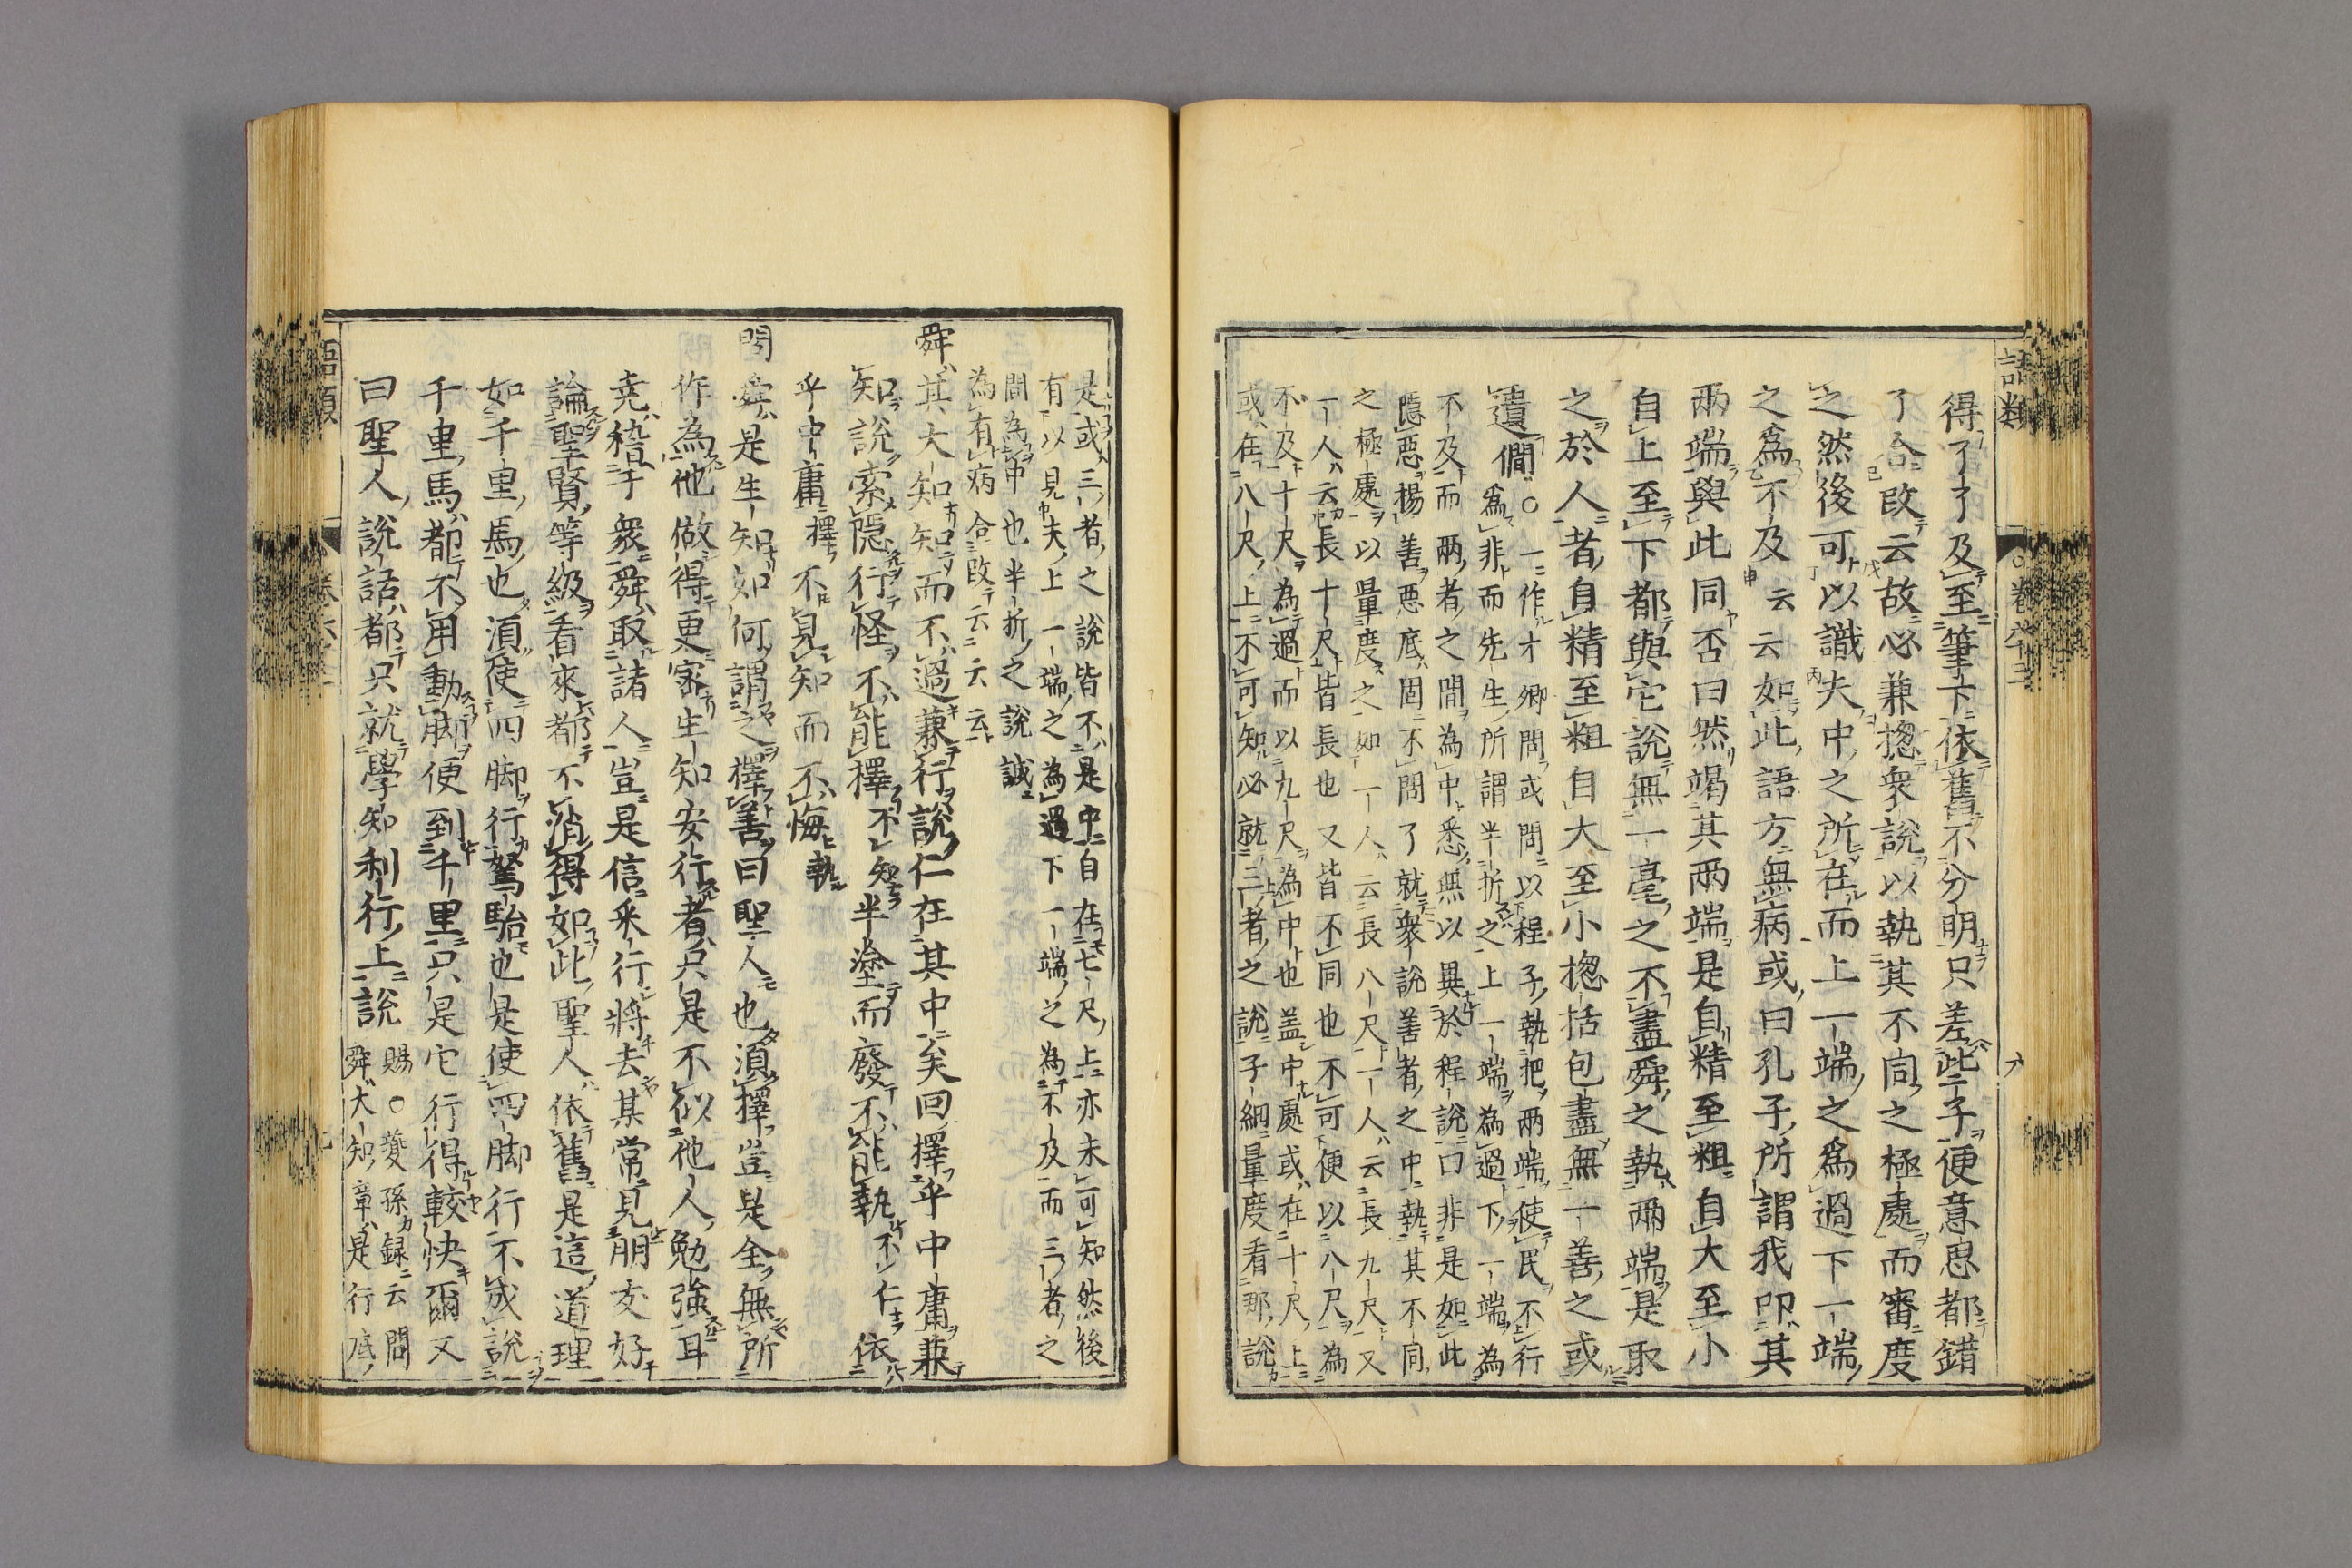 語類
卷六十三
得了了及至筆下依舊不分明只差此子便意思都錯
了合改云故必兼揔衆說以執其不同之極處而審度
之然後可以識夫中之所在而上一端之爲過下一端
之爲不及云云如此語方無病或曰孔子所謂我叩其
兩端與此同否曰然竭其兩端是自精至粗自大至小
自上至下都與它說無一毫之不盡舜之執兩端是取
之於人者自精至粗自大至小揔括包盡無一善之或
遺
僩○一作才卿問或問以程子執把兩端使民不行
爲非而先生所謂半折之上一端爲過下一端爲
不及而兩者之間為中悉無以異於程說曰非是如此
隱惡揚善惡底固不問了就衆說善者之中執其不同
之極處以量度之如一人云長八尺一人云長九尺又
一人云長十尺皆長也又皆不同也不可便以八尺為
不及十尺為過而以九尺為中也盖中處或在十尺上
或在八尺上不可知必就三者之說子細量度看那說
是或三者之說皆不是中自在七尺上亦未可知然後
有以見夫上一端之為過下一端之為不及而三者之
間為中也半折之說誠
為有病合改云云云
舜其大知知而不過兼行說仁在其中矣回擇乎中庸兼
知說索隱行怪不能擇不知半塗而廢不能執不仁依
乎中庸擇不見知而不悔執
問舜是生知如何謂之擇善曰聖人也須擇豈是全無所
作為他做得更宻生知安行者只是不似他人勉強耳
堯稽于衆舜取諸人豈是信采行將去某常見朋友好
論聖賢等級看來都不消得如此聖人依舊是這道理
如千里馬也須使四脚行駑駘也是使四脚行不成說
千里馬都不用動脚便到千里只是它行得較快爾又
曰聖人說話都只就學知利行上說
賜○䕫孫録云問
舜大知章是行底
語類
卷六十三